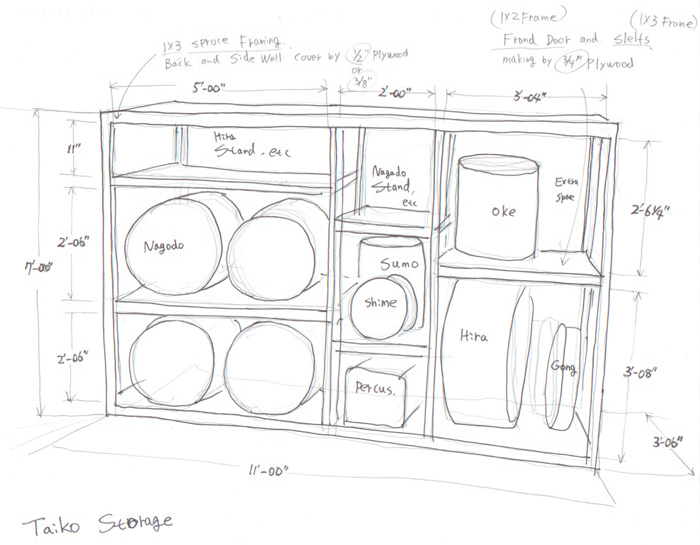 (1X2 Frame)
(1X3 Frame)
1X3 Spruce Framing.
Frond Door and Slelfs.
Back and Side Wall cover by 1/2" Plywood
or
3/8"
making by 3/4" Plywood
5'-00"
2'-00"
3'-04"
11"
Hira
Stand, etc
Nagado
Stand,
etc
oke
Extra
Spase
2'-6 1/4"
7'-00"
2'-06"
Nagado
Sumo
Shime
2'-06"
Percus.
Hira
Gong
3'-08"
3'-06"
11'-00"
Taiko Storage